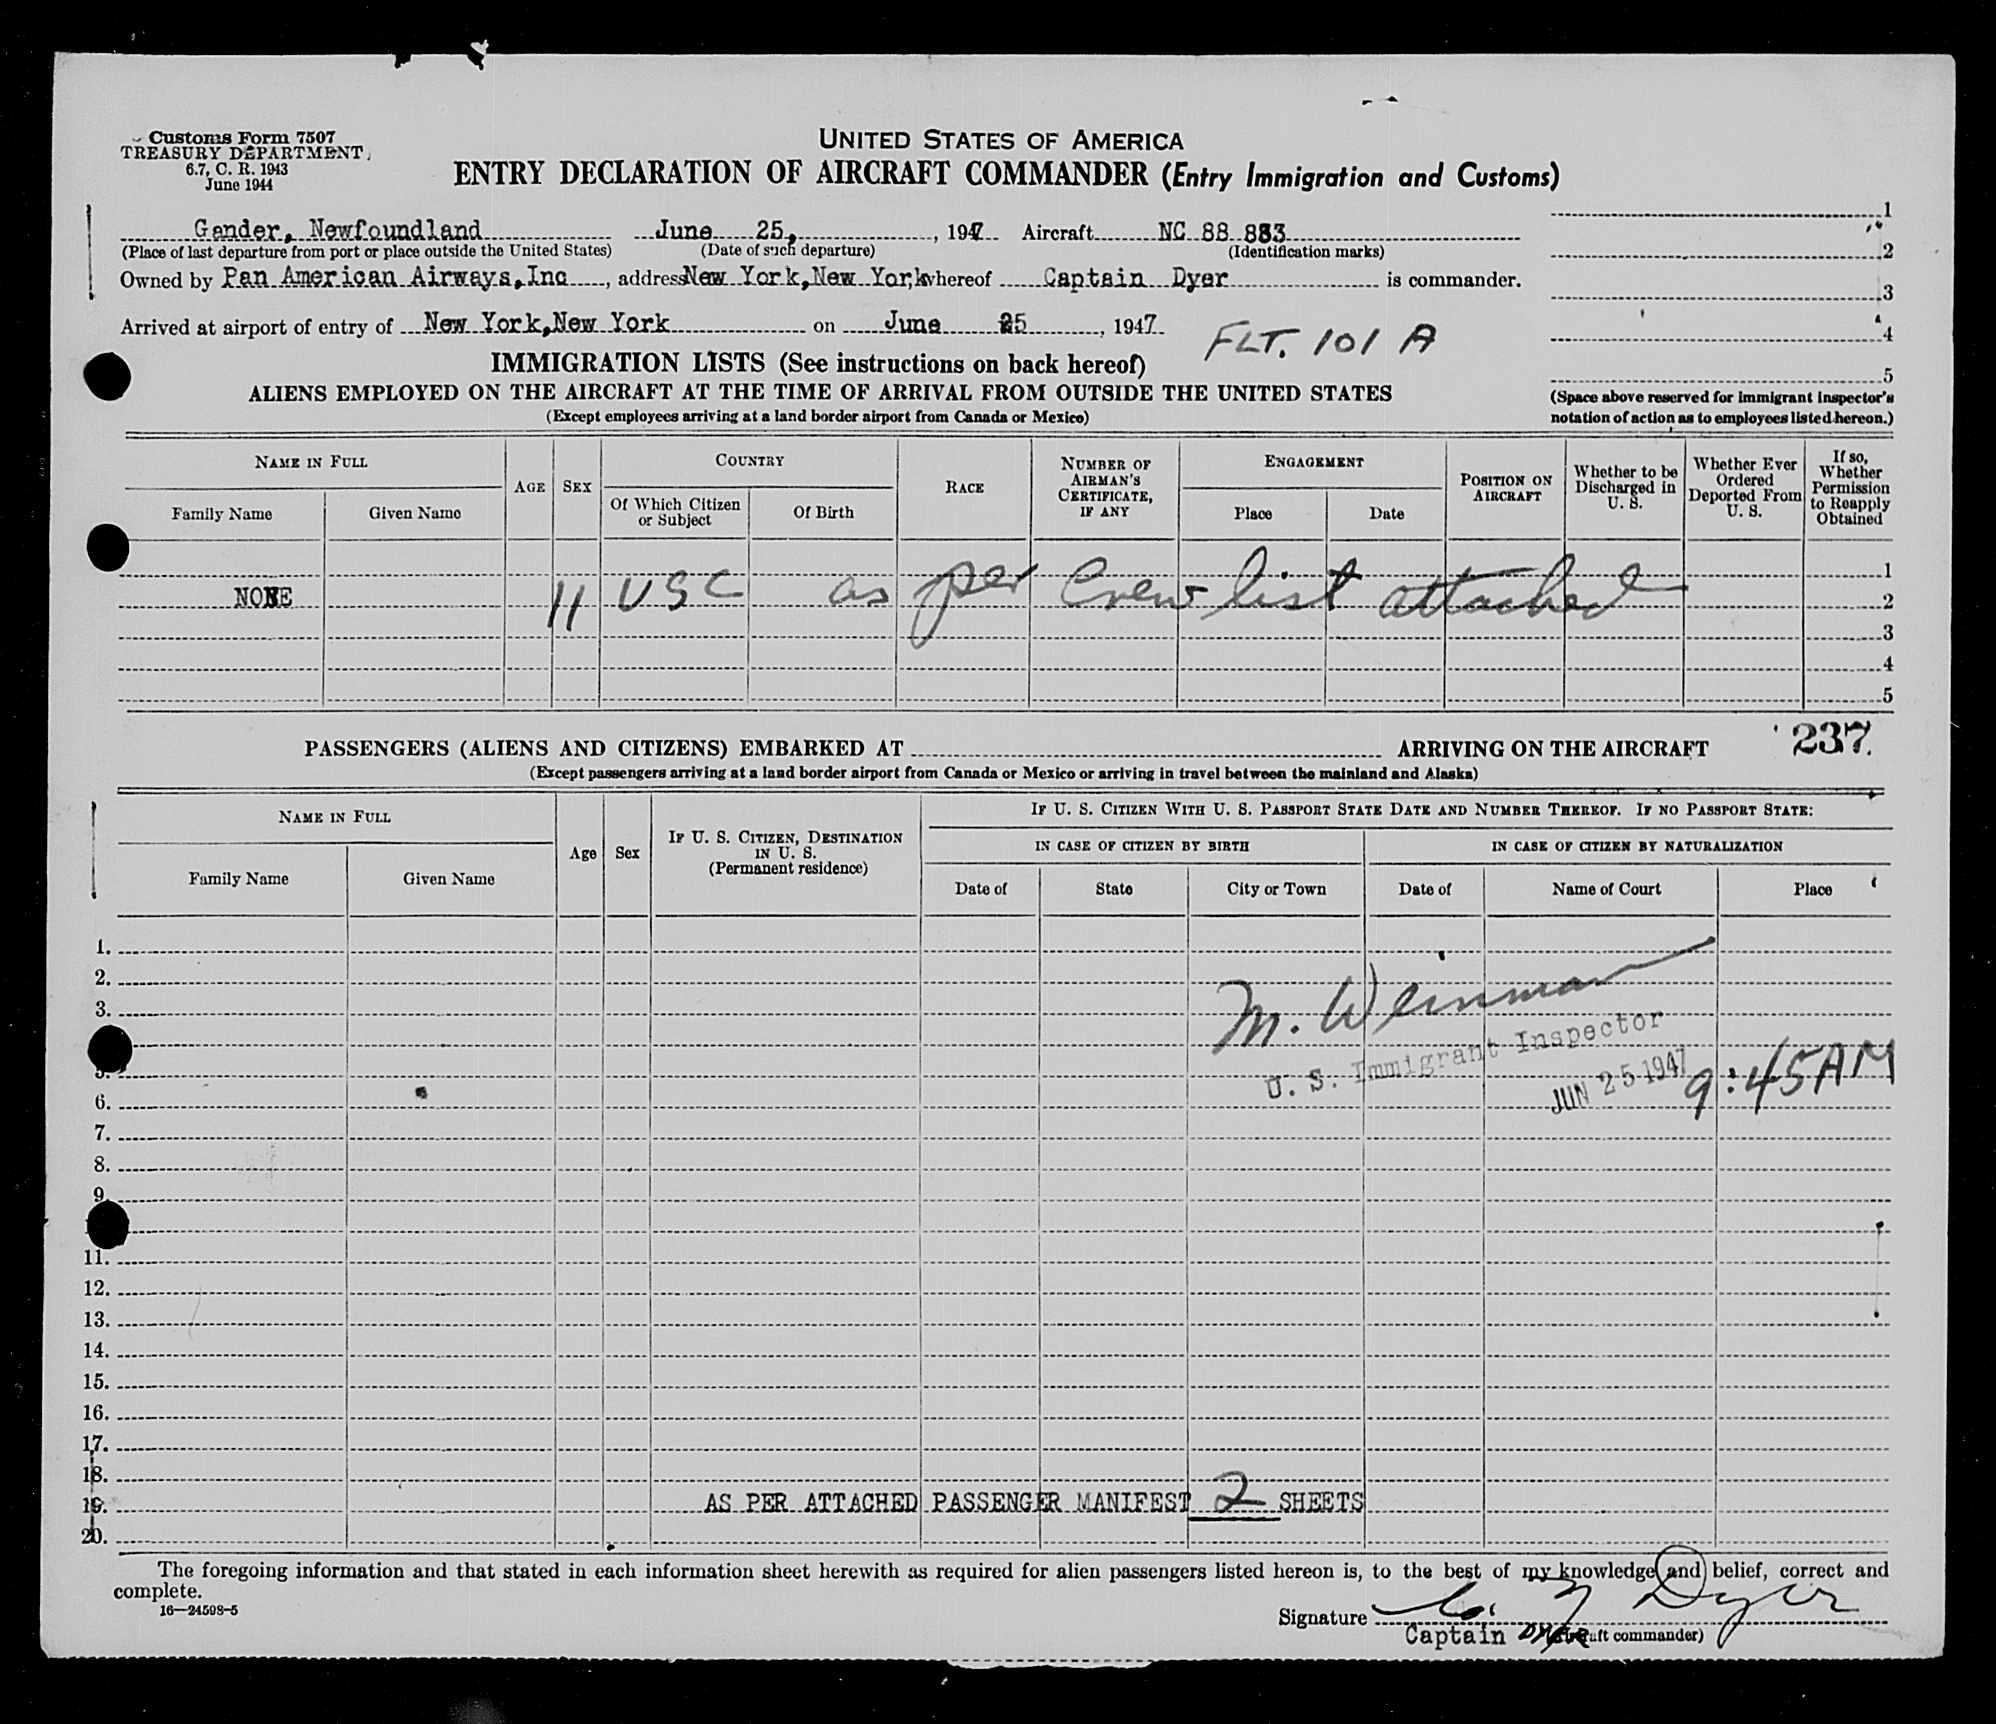 Customs Form 7507
TREASURY DEPARTMENT
6.7, C. R. 1943
June 1944
UNITED STATES OF AMERICA
ENTRY DECLARATION OF AIRCRAFT COMMANDER (Entry Immigration and Customs)
Gander, Newfoundland June 25, 1947 Aircraft NC 88 883
(Place of last departure from port or place outside the United States) (Date of such departure) (Identification marks)
Owned by Pan American Airways, Inc, address New York, New York, whereof Captain Dyer is commander.
Arrived at airport of entry of New York, New York on June 25, 1947
FLT. 101 A
1
2
3
4
5
(Space above reserved for Immigrant Inspector's
notation of action as to employees listed hereon.)
IMMIGRATION LISTS (See instructions on back hereof)
ALIENS EMPLOYED ON THE AIRCRAFT AT THE TIME OF ARRIVAL FROM OUTSIDE THE UNITED STATES
(Except employees arriving at a land border airport from Canada or Mexico)
NAME IN FULL
Family Name
Given Name
AGE
SEX
COUNTRY
Of Which Citizen
or Subject
Of Birth
RACE
NUMBER OF
AIRMAN'S
CERTIFICATE,
IF ANY
ENGAGEMENT
Place
Date
POSITION ON
AIRCRAFT
Whether to be
Discharged in
U. S.
Whether Ever
Ordered
Deported From
U. S.
If so,
Whether
Permission
to Reapply
Obtained
1
NONE 11 USC as per Crew list attached 2
3
4
5
PASSENGERS (ALIENS AND CITIZENS) EMBARKED AT ARRIVING ON THE AIRCRAFT 237
(Except passengers arriving at a land border airport from Canada or Mexico or arriving in travel between the mainland and Alaska)
NAME IN FULL
Family Name
Given Name
Age
Sex
IF U. S. CITIZEN, DESTINATION
IN U. S.
(Permanent residence)
IF U. S. CITIZEN WITH U. S. PASSPORT STATE DATE AND NUMBER THEREOF. IF NO PASSPORT STATE:
IN CASE OF CITIZEN BY BIRTH
IN CASE OF CITIZEN BY NATURALIZATION
Date of
State
City or Town
Date of
Name of Court
Place
1.
2.
3.
M. Weinman
U. S. Immigrant Inspector
5.
JUN 25 1947 9:45AM
6.
7.
8.
9.
11.
12.
13.
14.
15.
16.
17.
18.
19. AS PER ATTACHED PASSENGER MANIFEST 2 SHEETS
20.
The foregoing information and that stated in each information sheet herewith as required for alien passengers listed hereon is, to the best of my knowledge and belief, correct and
complete.
16—24598-5
Signature Dyer
Captain Dyer (Aircraft commander)